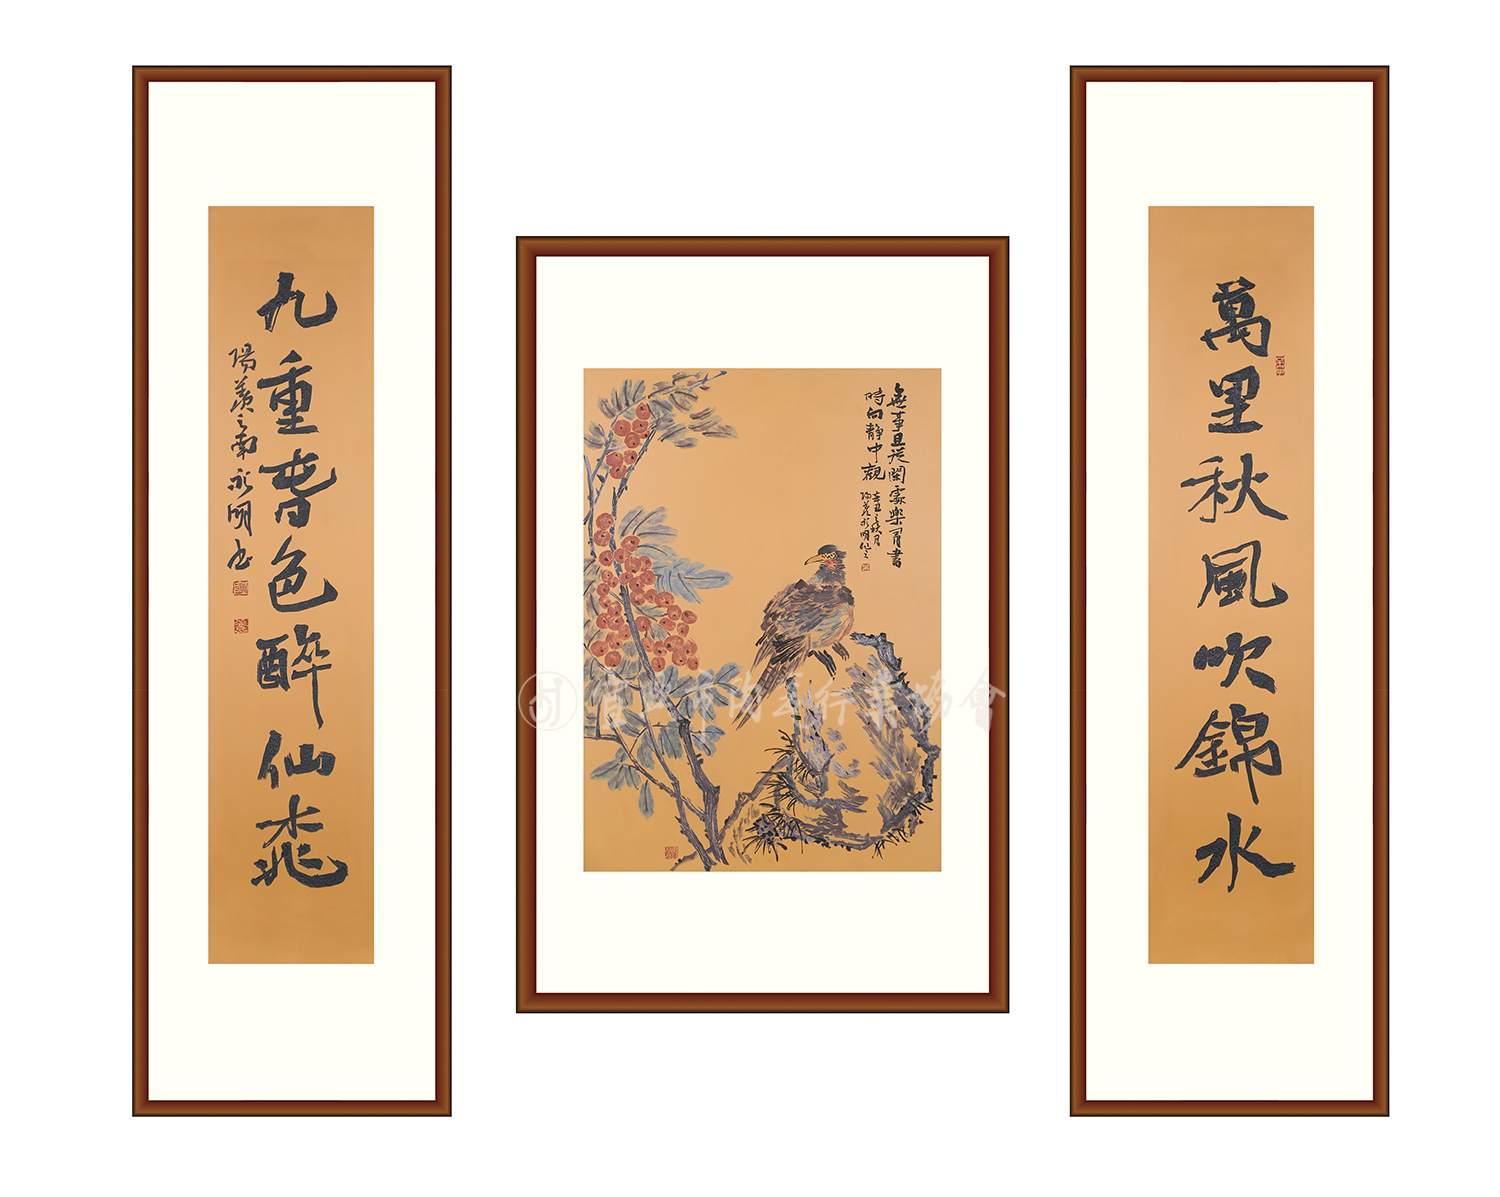 萬里秋風吹錦水
無事且從閑處樂有書
時向靜中觀
辛丑之秋月
陽羨永明作
九重春色醉仙桃
陽羨之南永明書
宜興市陶瓷行業協會